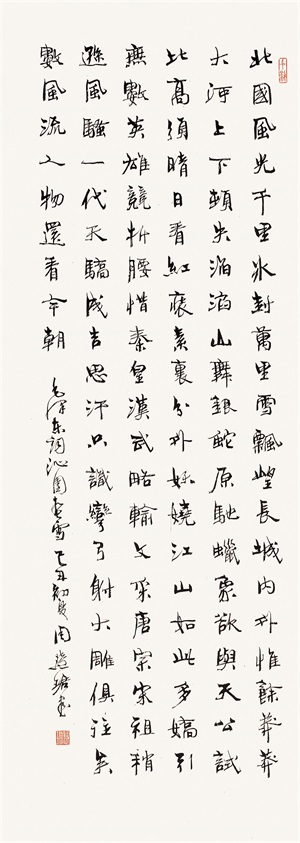 北國風光千里冰封萬里雪飄望長城內外惟餘莽莽
大河上下頓失滔滔山舞銀蛇原馳蠟象欲與天公試
比高須晴日看紅裝素裹分外妖嬈江山如此多嬌引
無數英雄競折腰惜秦皇漢武略輸文采唐宗宋祖稍
遜風騷一代天驕成吉思汗只識彎弓射大雕俱往矣
數風流人物還看今朝
毛澤東詞沁園春雪 初夏 周慧珺書